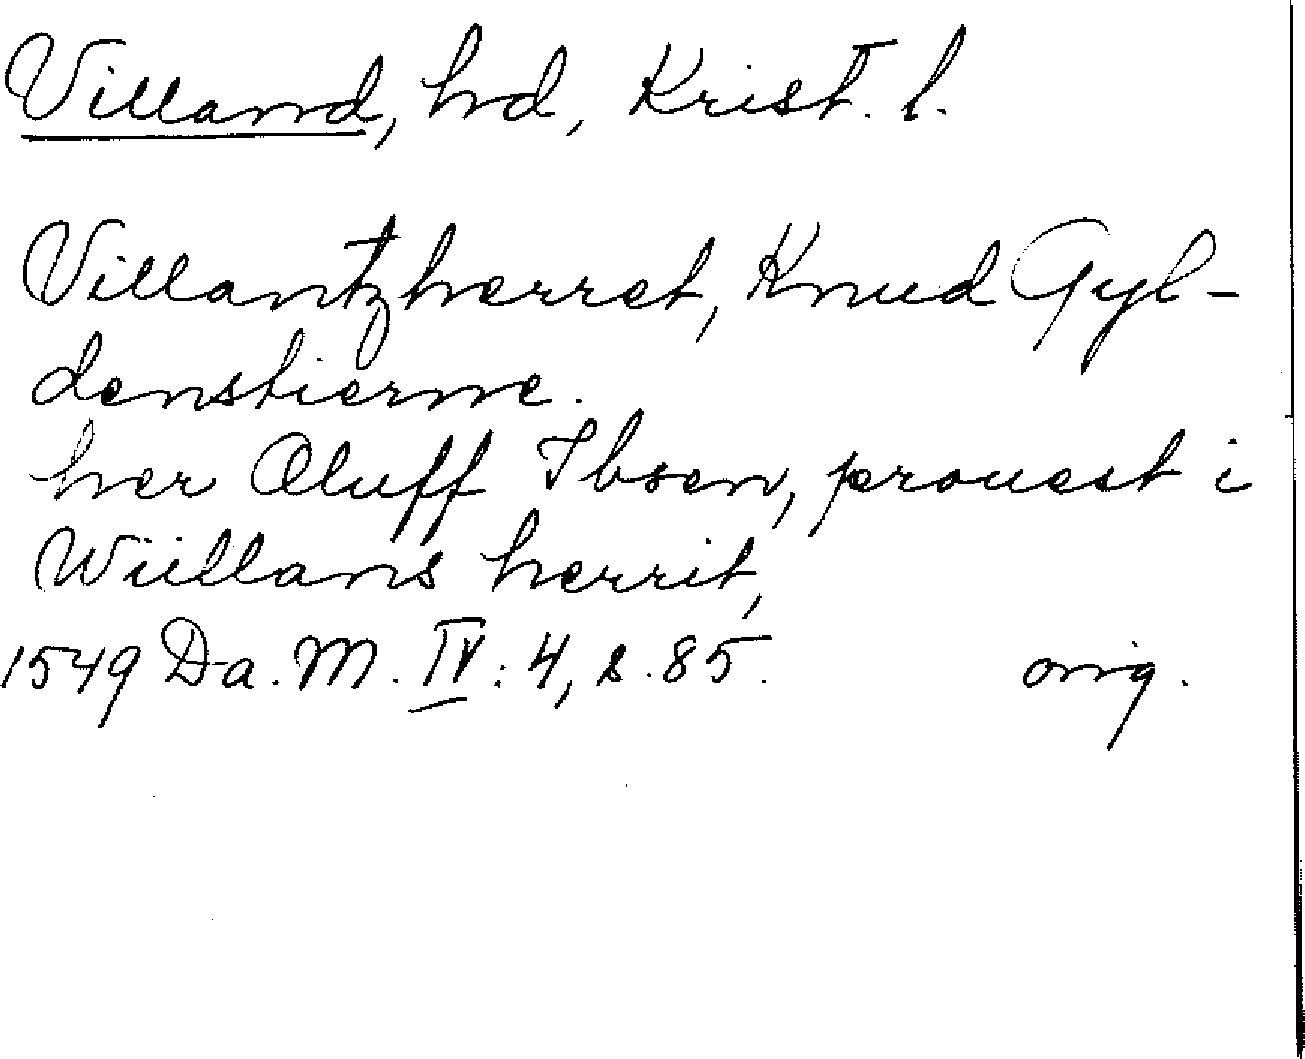 Villand, hd, Krist. l.
Villantzherret, Knud Gyl-
denstierne.
her Oluff Ibsen, prouest i
Wiillans herrit,
1549 Da. M. IV: 4, s. 85. orig.